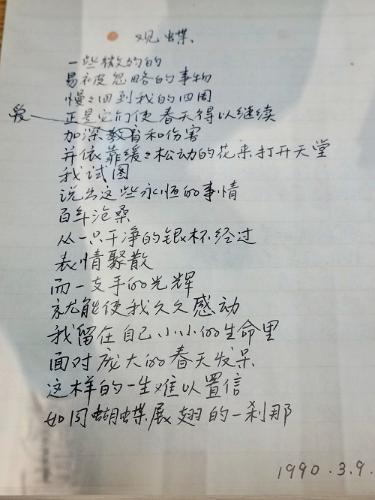 观蝶
一些微小的
易被忽略的事物
慢慢回到我的四周
爱
正是它们使春天得以继续
加深教育和伤害
并依靠缓缓松动的花来打开天堂
我试图
说出这些永恒的事情
百年沧桑
从一只干净的银杯经过
表情聚散
而一支手的光辉
就能使我久久感动
我留在自己小小的生命里
面对庞大的春天发呆
这样的一生难以置信
如同蝴蝶展翅的一刹那
1990.3.9.